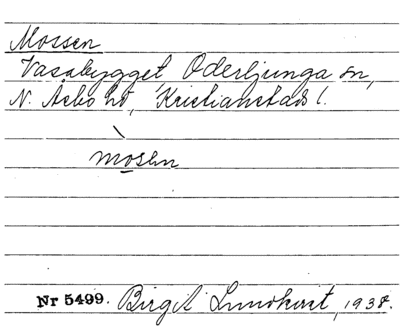 Mossen
Vasabygget Oderljunga sn,
N. Åsbo hd, Kristianstads l.
mosen
Nr 5499. Birgit Lundkvist, 1938.